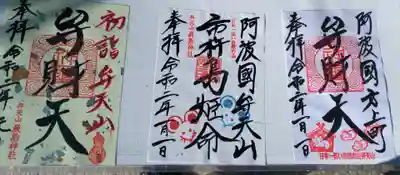 初詣弁天山
弁財天
奉拝令和二年元
弁天山厳島神社
阿波國弁天山
市杵島姫命
奉拝令和二年一月一日
阿波國方上町
弁財天
奉拝令和二年一月一日